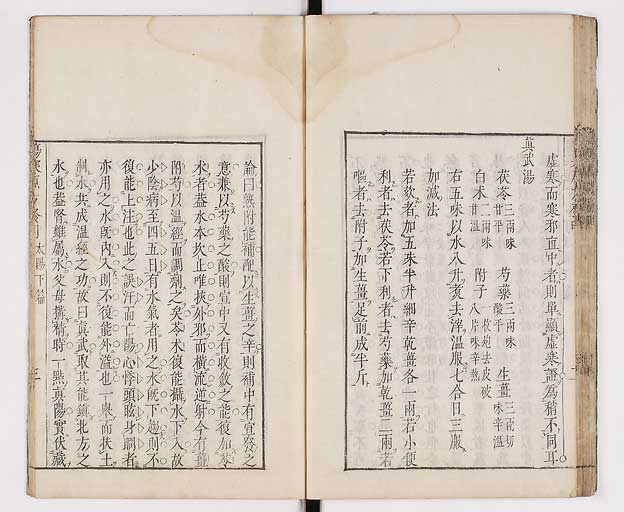 虛寒而寒邪直中者則單顯虛寒證爲稍不同耳
眞武湯
茯苓三兩味甘平 芍藥三兩味酸平 生薑三兩切味辛溫
白朮二兩味甘溫 附子一枚炮去皮破八片味辛熱
右五味以水八升煑去滓溫服七合日三服
加減法
若欬者加五味半升細辛乾薑各一兩若小便
利者去茯苓若下利者去芍藥加乾薑二兩若
嘔者去附子加生薑足前成半斤
論曰薑附能補配以生薑之辛則補中有宣發之
意兼以芍藥之酸則宣中又有收斂之能復加苓
朮者蓋水本坎止唯挾外邪而橫流逆射今有薑
附芍以溫經而調劑之矣苓朮復能攝水下入故
少陰病至四五日有水氣者用之水旣下趨則不
復能上注也此之誤汗而亡陽心悸頭眩身瞤者
亦用之水旣內入則不復能外溢也一舉而扶土
制水共成溫經之功故曰眞武取其能鎭北方之
水也蓋腎雖屬水父母搆精時一點眞陽實伏藏
太陽下篇